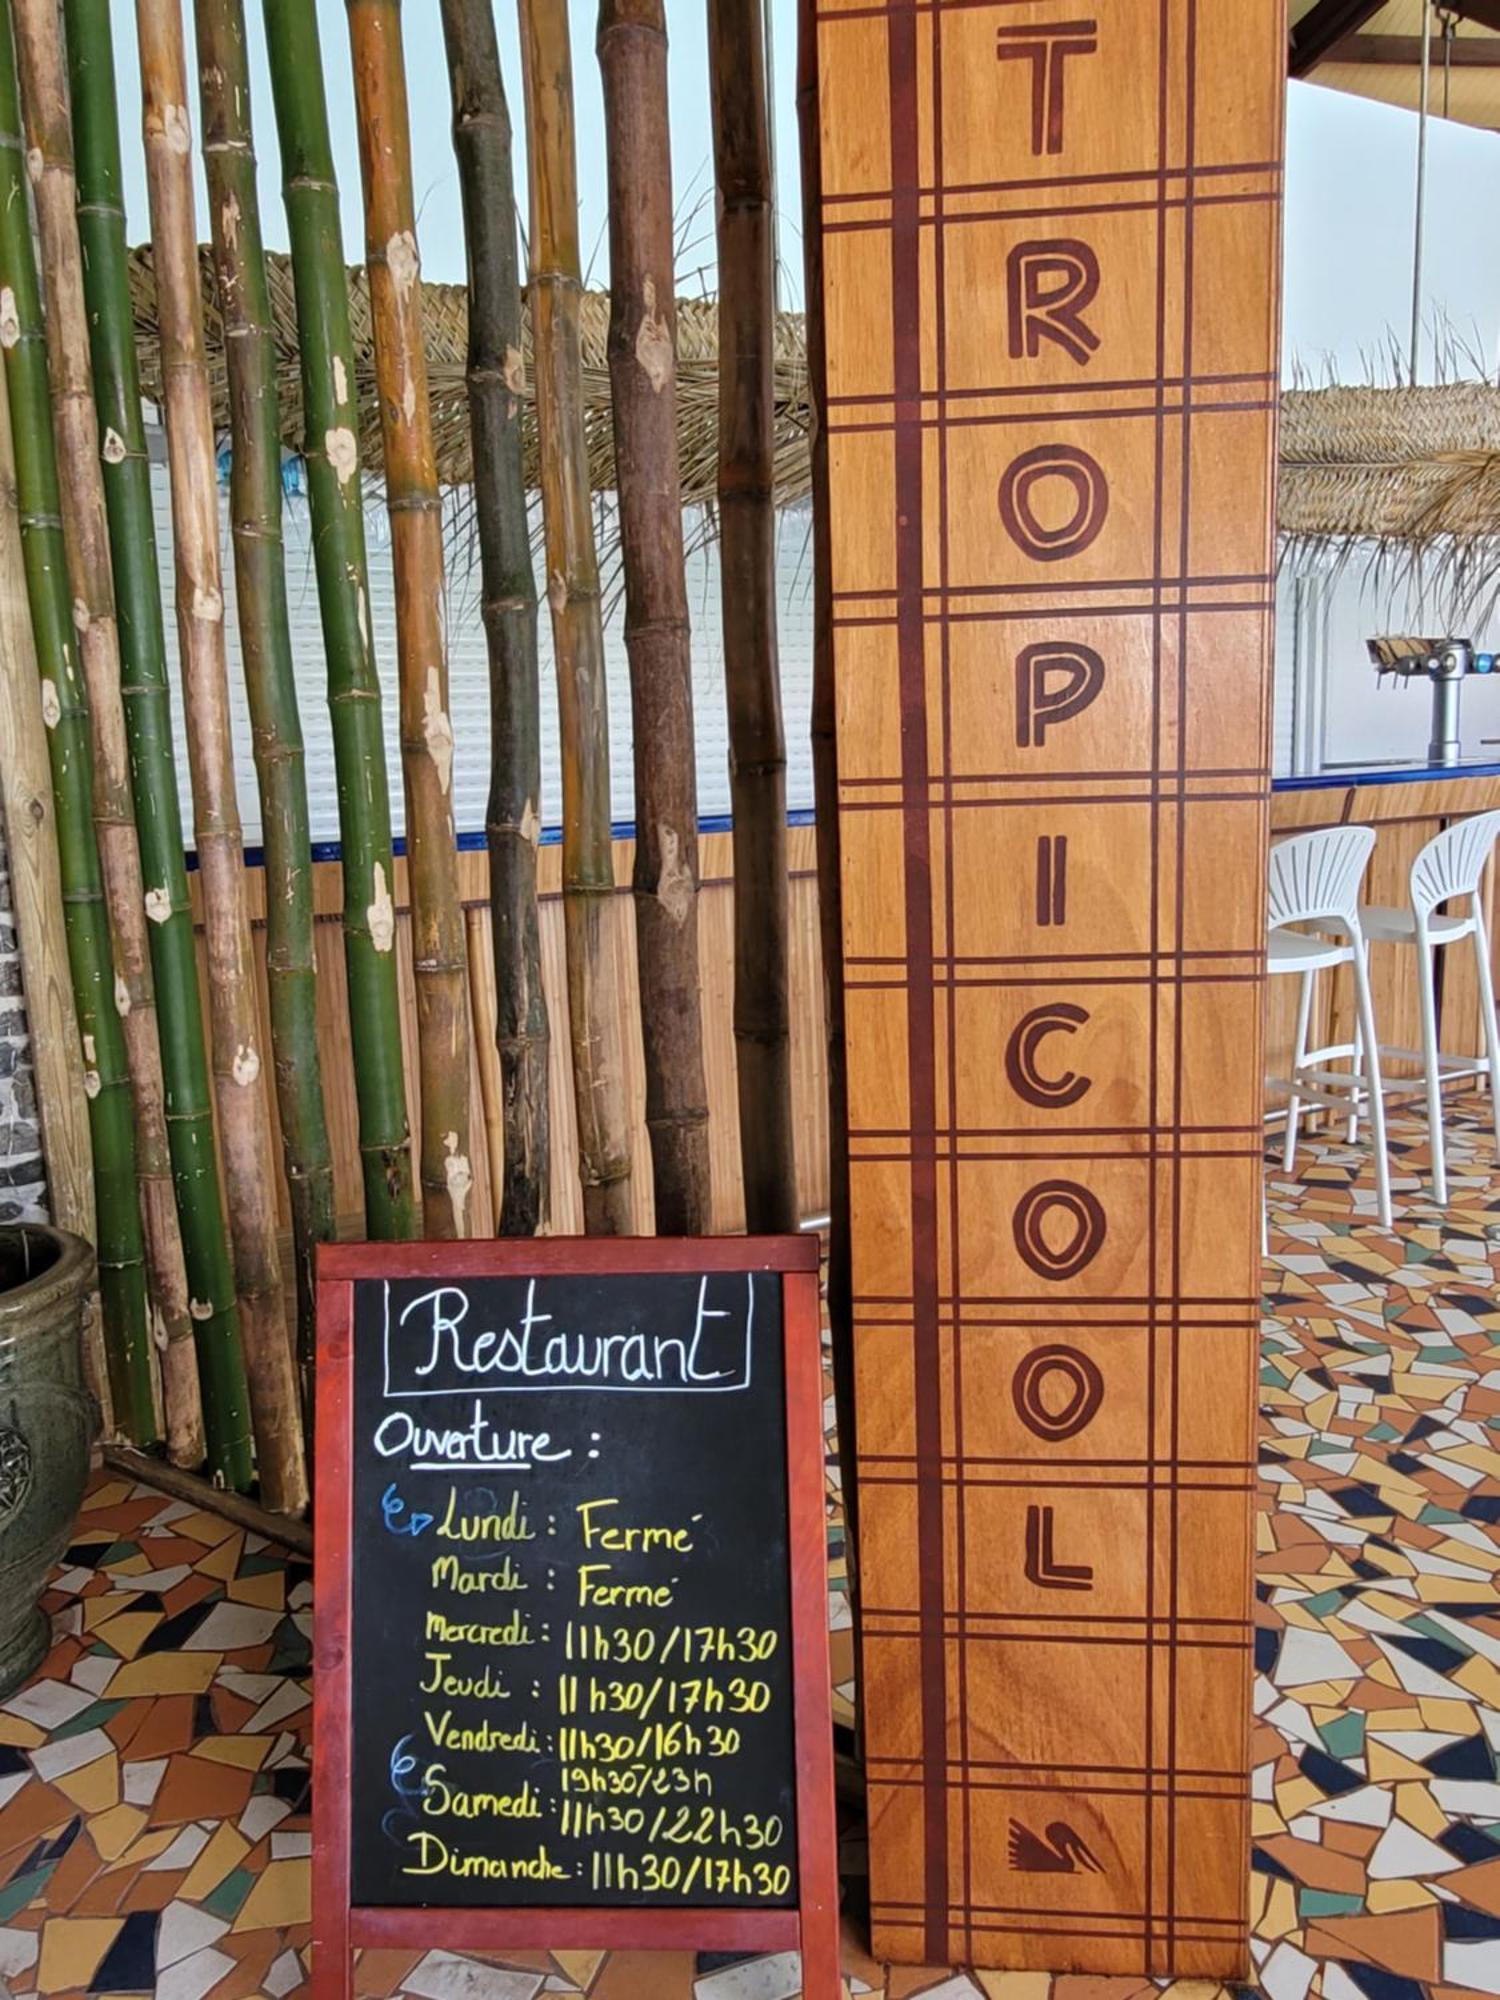 TROPICOOL
Restaurant
Ouverture :
Lundi : Fermé
Mardi : Fermé
Mercredi : 11h30/17h30
Jeudi : 11h30/17h30
Vendredi : 11h30/16h30
19h30/23h
Samedi : 11h30/22h30
Dimanche : 11h30/17h30